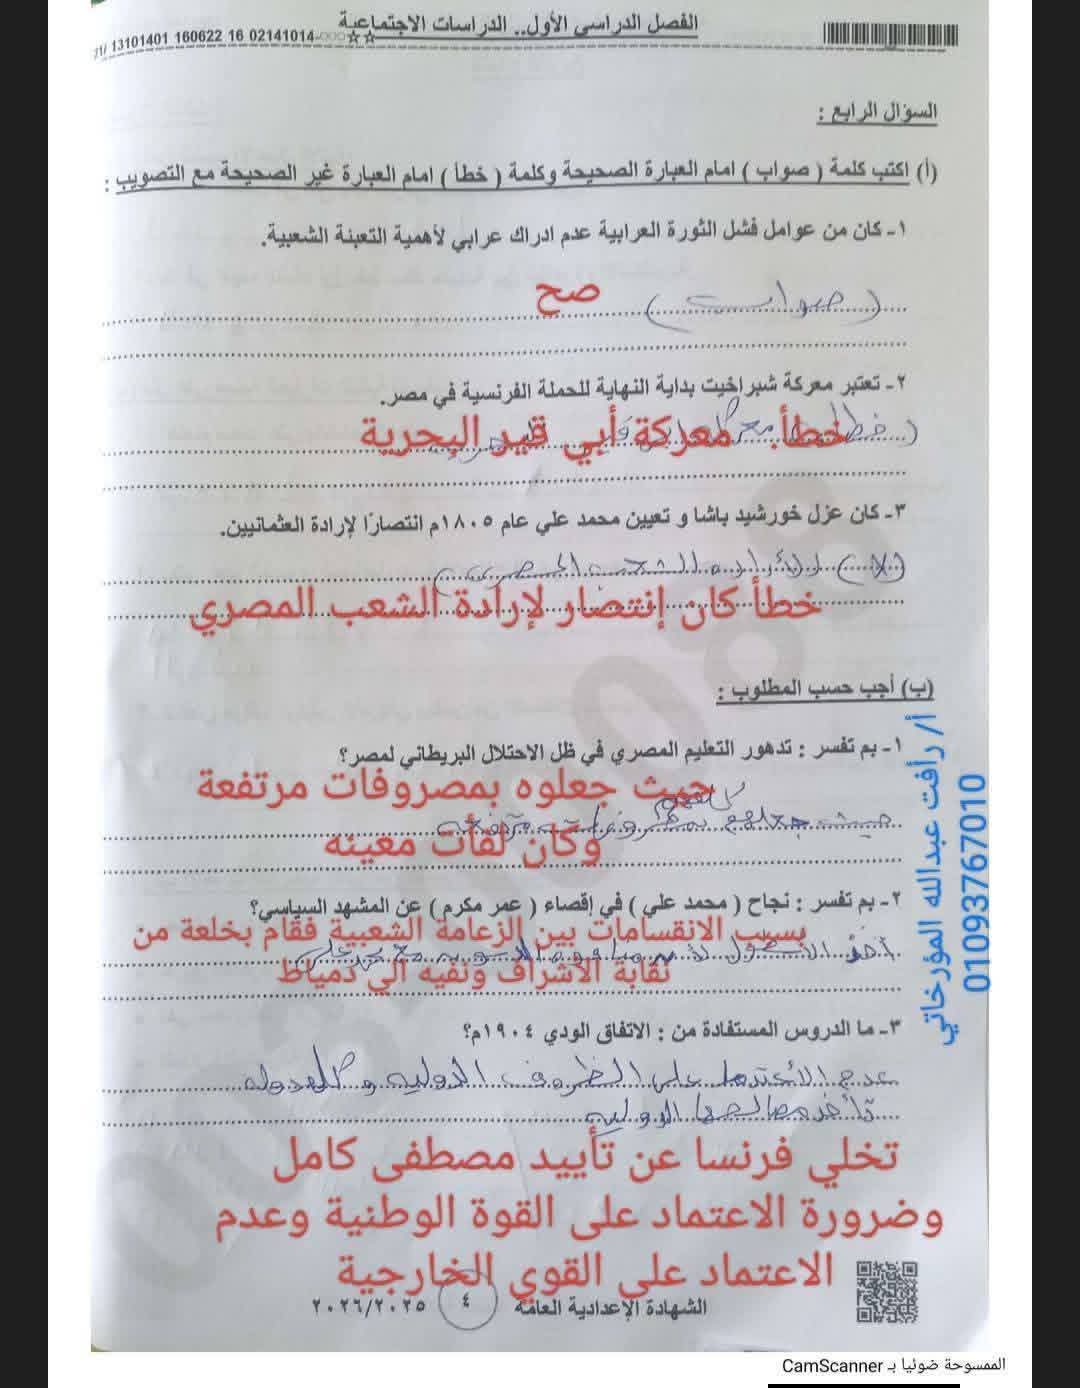 الفصل الدراسى الأول.. الدراسات الاجتماعية
13101401 160622 16 02141014
السؤال الرابع :
(أ) اكتب كلمة ( صواب ) امام العبارة الصحيحة وكلمة ( خطأ ) امام العبارة غير الصحيحة مع التصويب :
١- كان من عوامل فشل الثورة العرابية عدم ادراك عرابي لأهمية التعبئة الشعبية.
(صواب) صح
٢- تعتبر معركة شبراخيت بداية النهاية للحملة الفرنسية في مصر.
خطأ. معركة أبي قير البحرية
٣- كان عزل خورشيد باشا و تعيين محمد علي عام ١٨٠٥م انتصارًا لإرادة العثمانيين.
(لا) لأراده الشعب المصرى
خطأ كان إنتصار لإرادة الشعب المصري
(ب) أجب حسب المطلوب :
١- بم تفسر : تدهور التعليم المصري في ظل الاحتلال البريطاني لمصر؟
حيث جعلوه بمصروفات مرتفعة
حيث جعلوه بمصروفات مرتفعه
وكان لفأت معينه
٢- بم تفسر : نجاح ( محمد علي ) في إقصاء ( عمر مكرم ) عن المشهد السياسي؟
بسبب الانقسامات بين الزعامة الشعبية فقام بخلعة من
نقابة الأشراف ونفيه الي دمياط
٣- ما الدروس المستفادة من : الاتفاق الودي ١٩٠٤م؟
عدم الأعتماد على الظروف الدوليه
تخلي فرنسا عن تأييد مصطفى كامل
وضرورة الاعتماد على القوة الوطنية وعدم
الاعتماد على القوي الخارجية
الشهادة الإعدادية العامة ٤ ٢٠٢٦/٢٠٢٥
أ/ رأفت عبدالله المؤرخاتي
01093767010
الممسوحة ضوئيا بـ CamScanner